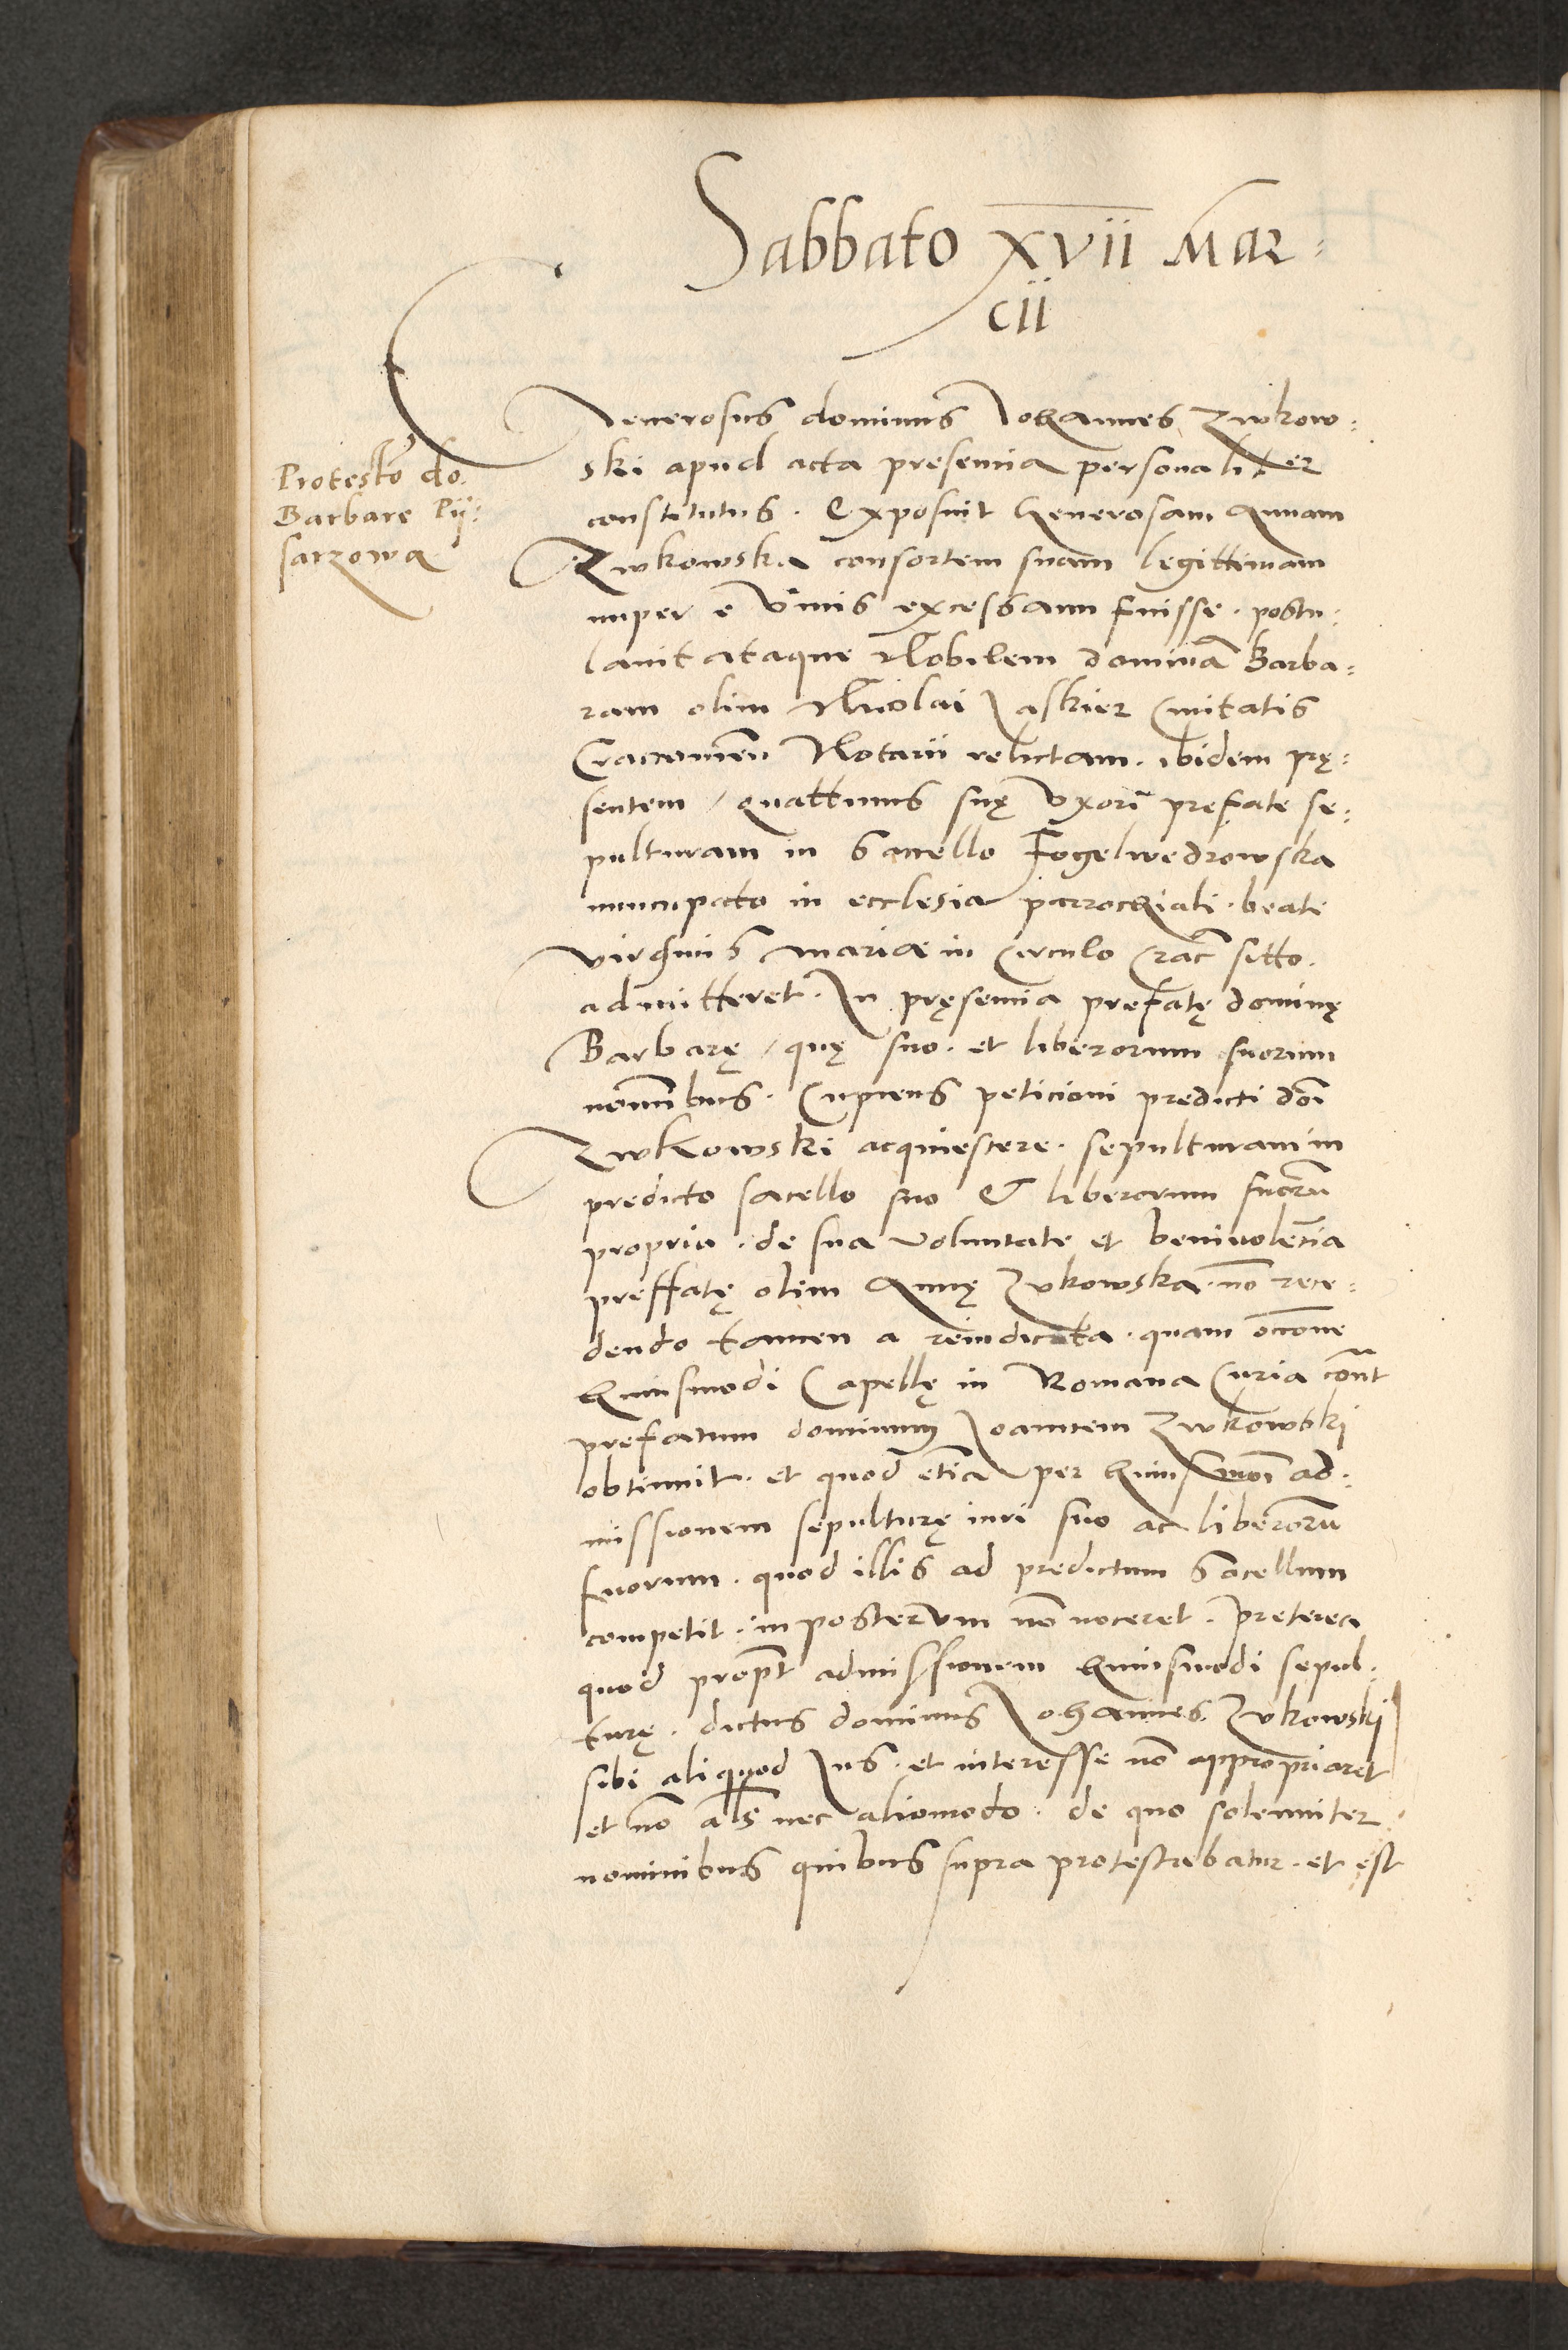 Sabbato XVII Mar=
cii
Generosus dominus Iohannes Zwkow=
ski apud acta presencia personaliter
constitutus. Exposuit Generosam Annam
Zwkowska consortem suam legittimam
nuper e vivis excessam fuisse. postu=
lavit ataque Nobilem dominã Barba=
ram olim Nicolai Iaskier Civitatis
Cracovieñ Notarii relictam. ibidem prę=
sentem / quattinus suę Uxori prefate se=
pulturam in Sacello Fogelwedrowska
nuncupato in ecclesia parrochiali beate
virginis Mariæ in Circulo Crac̃ sitto.
admitteret. In pręsencia prefatę dominę
Barbarę / quę suo. et liberorum suorum
nom̃ibus. Cupiens peticioni predicti dõi
Zwkowski acquiescere. sepulturam in
predicto sacello suo & liberorum suorũ
proprio. de sua voluntate et benivolẽcia
preffatę olim Annę Zukowska. nõ rece=
dendo tamen a reindicata. quam occõne
huiusmodi Capellę in Romana Curia cont̃
prefatum dominum Joannem Zwkowski
obtinuit. et quod etiã per huiusmõi ad=
missionem sepulturę iuri suo ac liberorũ
suorum. quod illis ad predictum Sacellum
competit. in posterum nõ noceret. Preterea
quod propt̃ admissionem huiusmodi sepul=
turę. dictus dominus Iohannes Zukowski
sibi aliquod Ius. et interesse nõ appropriaret
et nõ al̃s nec aliomodo. de quo solenniter
nominibus quibus supra protestabatur. et est
Protestõ do.
Barbare Pij=
sarzowa